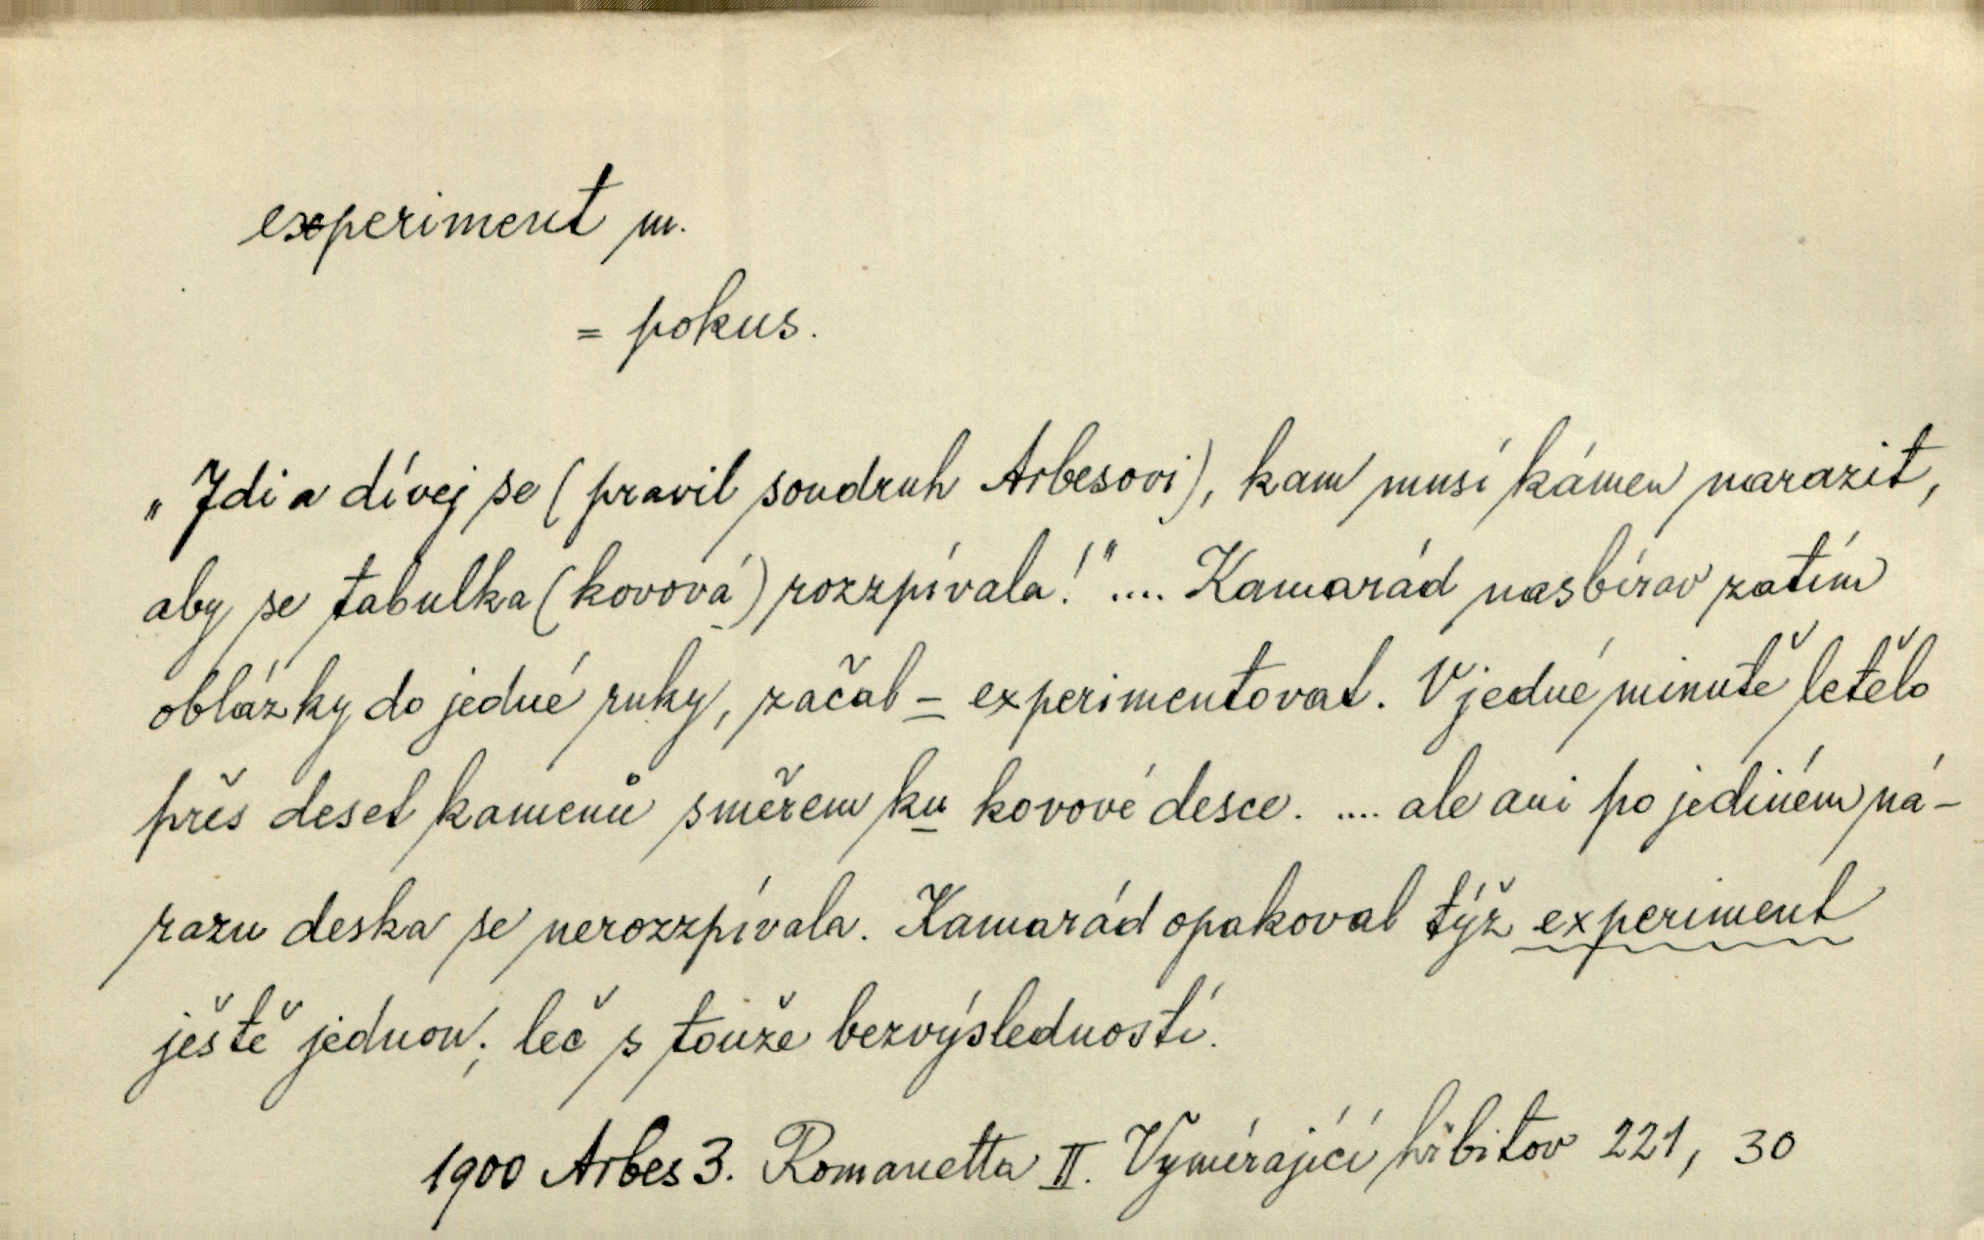 experiment m.
= pokus.
„Jdi a dívej se (pravil soudruh Arbesovi), kam musí kámen narazit,
aby se tabulka (kovová) rozzpívala!" .... Kamarád nasbírav zatím
oblázky do jedné ruky, začal – experimentovat. V jedné minutě letělo
přes deset kamenů směrem ku kovové desce. .... ale ani po jediném ná-
razu deska se nerozzpívala. Kamarád opakoval týž experiment
ještě jednou; leč s touže bezvýsledností.
1900 Arbes 3. Romanetta II. Vymírající hřbitov 221, 30